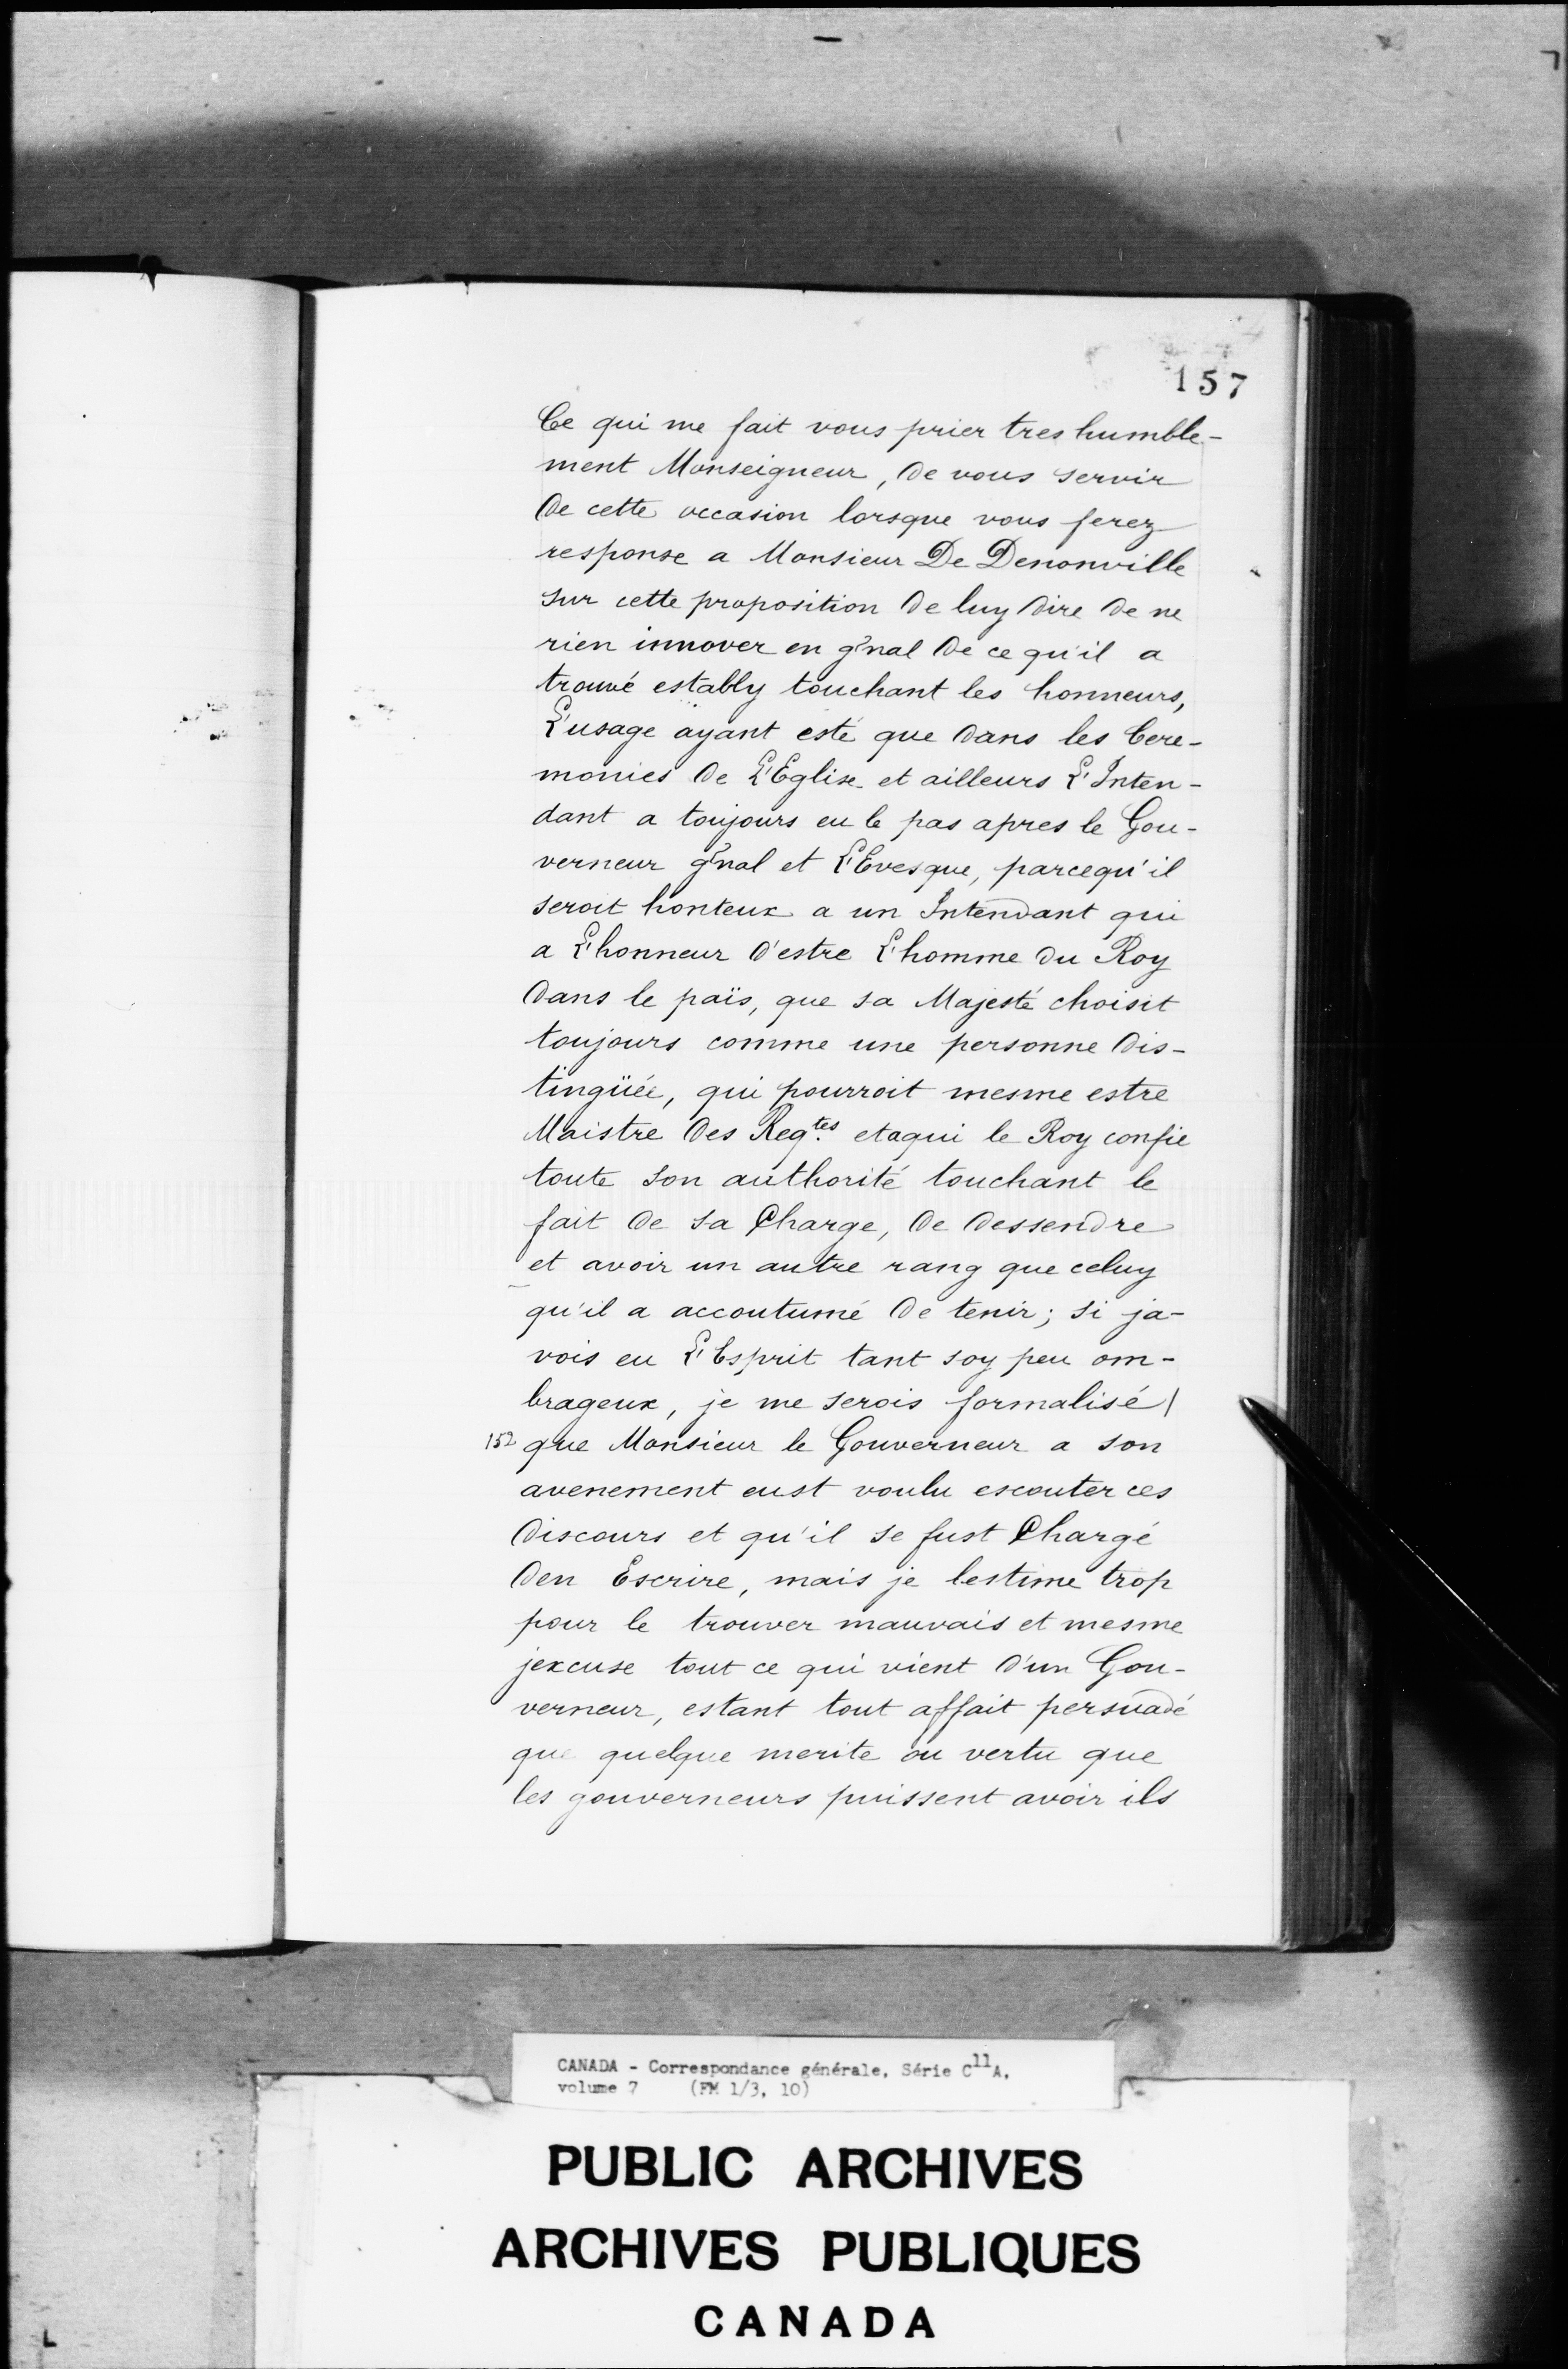 157
Ce qui me fait vous prier tres humble-
ment Monseigneur, de vous servir
de cette occasion lorsque vous ferez
response a Monsieur De Denonville
sur cette proposition de luy dire de ne
rien innover en gñal de ce qu'il a
trouvé estably touchant les honneurs,
L'usage ayant esté que dans les Cere-
monies de L'Eglise et ailleurs L'Inten-
dant a toujours eu le pas apres le Gou-
verneur gñal et L'Evesque, parcequ'il
seroit honteux a un Intendant qui
a L'honneur d'estre L'homme du Roy
dans le païs, que sa Majesté choisit
toujours comme une personne dis-
tingüée, qui pourroit mesme estre
Maistre des Reqtes. etaqui le Roy confie
toute son authorité touchant le
fait de sa Charge, de dessendre
et avoir un autre rang que celuy
qu'il a accoutumé de tenir; si ja-
vois eu L'Esprit tant soy peu om-
brageux, je me serois formalisé /
152 que Monsieur le Gouverneur a son
avenement eust voulu escouter ces
discours et qu'il se fust Chargé
den Escrire, mais je lestime trop
pour le trouver mauvais et mesme
jexcuse tout ce qui vient d'un Gou-
verneur, estant tout affait persuadé
que quelque merite ou vertu que
les gouverneurs puissent avoir ils
CANADA - Correspondance générale, Série C11A,
volume 7 (FM 1/3, 10)
PUBLIC ARCHIVES
ARCHIVES PUBLIQUES
CANADA